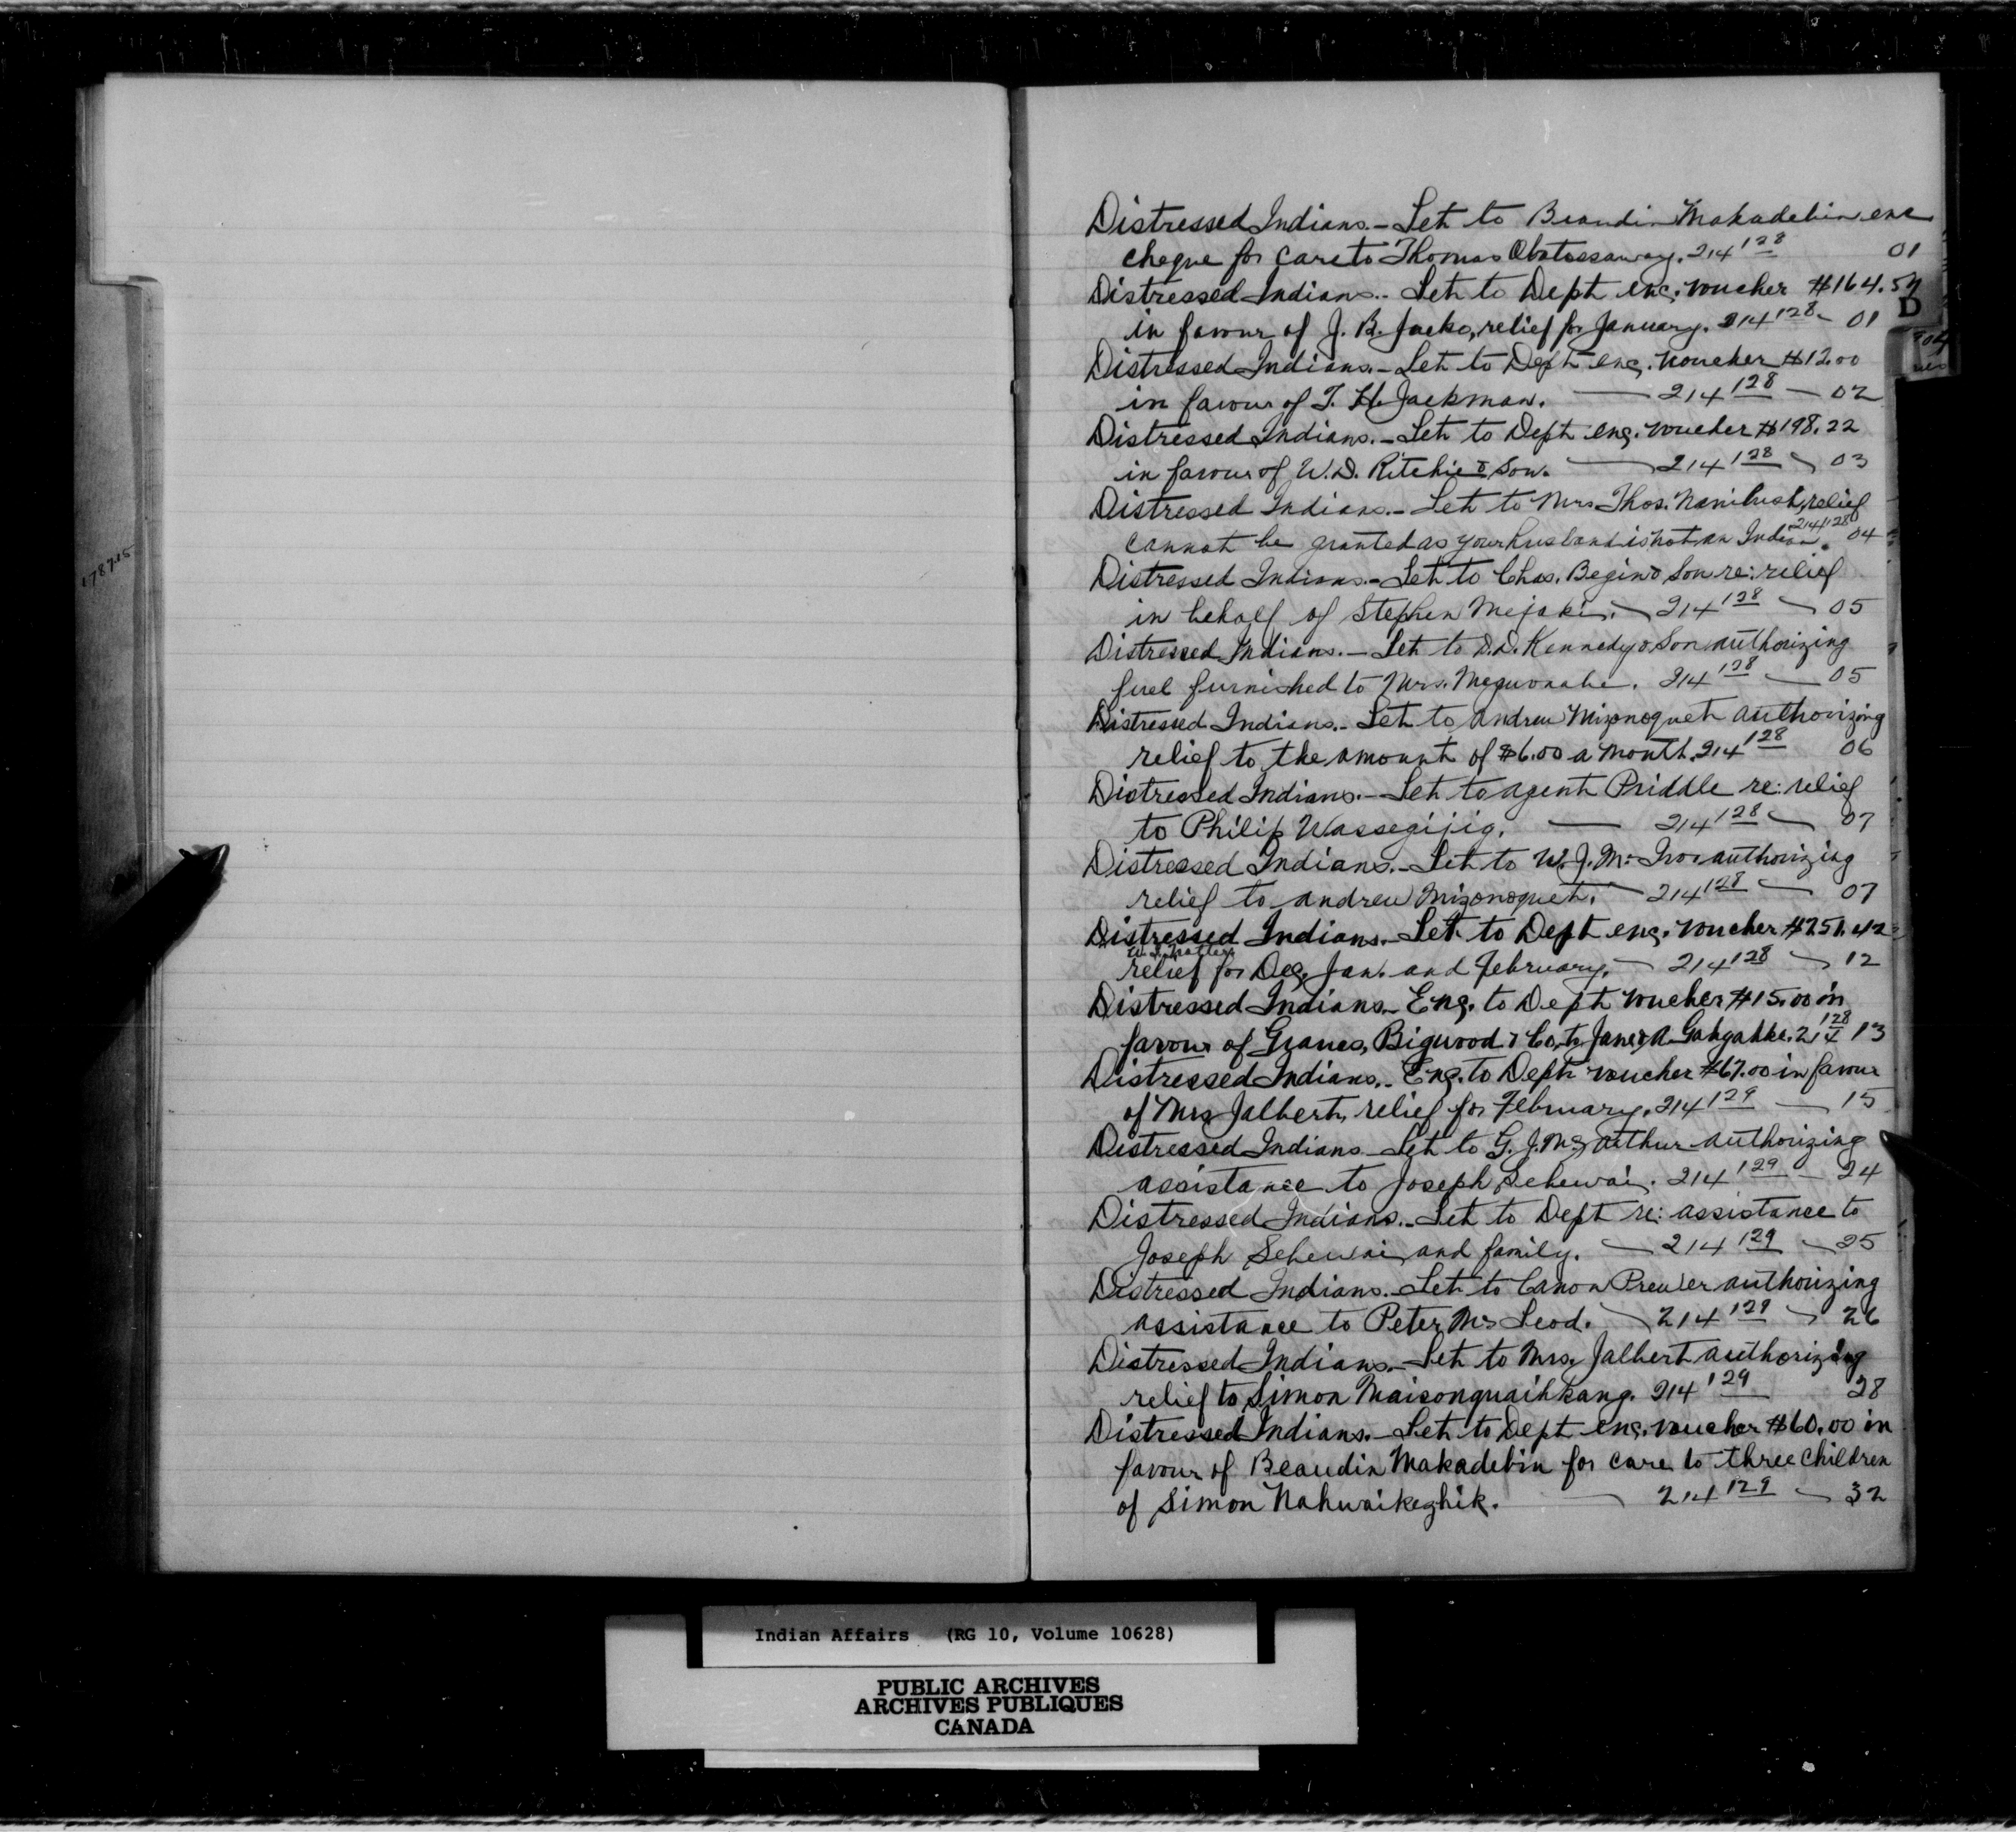 178715
Distressed Indians.- Let to Beaudin Makadebin enc
cheque for care to Thomas Obotossaway. 214 128 01
Distressed Indians.- Let to Dept enc. voucher $164.54
in favour of J. B. Jacko, relief for January. 214 128 - 01
D
Distressed Indians.- Let to Dept enc. voucher $12.00
in favour of T. H. Jackman. — 214 128 — 02
Distressed Indians.- Let to Dept enc. voucher $198.22
in favour of W. D. Ritchie & Son. — 214 128 - 03
Distressed Indians.- Let to Mrs. Thos. Nanibush, relief
cannot be granted as your husband is not an Indian. 214 128 04
Distressed Indians.- Let to Chas. Begin & Son re: relief
in behalf of Stephen Mejaki. - 214 128 - 05
Distressed Indians.- Let to D. D. Kennedy & Son authorizing
fuel furnished to Mrs. 214 128 — 05
Distressed Indians.- Let to Andrew Mizonoquet authorizing
relief to the amount of $6.00 a month. 214 128 06
Distressed Indians.- Let to agent Priddle re: relief
to Philip Wassegijig. — 214 128 - 07
Distressed Indians.- Let to W. J. authorizing
relief to Andrew Mizonoquet. - 214 128 — 07
Distressed Indians.- Let to Dept enc. voucher $251.42
relief for Dec. Jan. and February. - 214 128 - 12
Distressed Indians.- Enc. to Dept voucher $15.00 in
favour of Graves, Bigwood & Co, to Jane A. Gahgahke. 214 128 13
Distressed Indians.- Enc. to Dept voucher $67.00 in favour
of Mrs Jalbert, relief for February. 214 129 — 15
Distressed Indians.- Let to G. J. McArthur authorizing
assistance to Joseph Sehewai. 214 129 - 24
Distressed Indians.- Let to Dept re: assistance to
Joseph Sehewai and family. - 214 129 - 25
Distressed Indians.- Let to Canon Prewer authorizing
assistance to Peter McLeod. - 214 129 - 26
Distressed Indians.- Let to Mrs. Jalbert authorizing
relief to Simon Maisonquaihkang. 214 129 28
Distressed Indians.- Let to Dept enc. voucher $60.00 in
favour of Beaudin Makadebin for care to three children
of Simon Nahwaikezhik. - 214 129 - 32
Indian Affairs (RG 10, Volume 10628)
PUBLIC ARCHIVES
ARCHIVES PUBLIQUES
CANADA